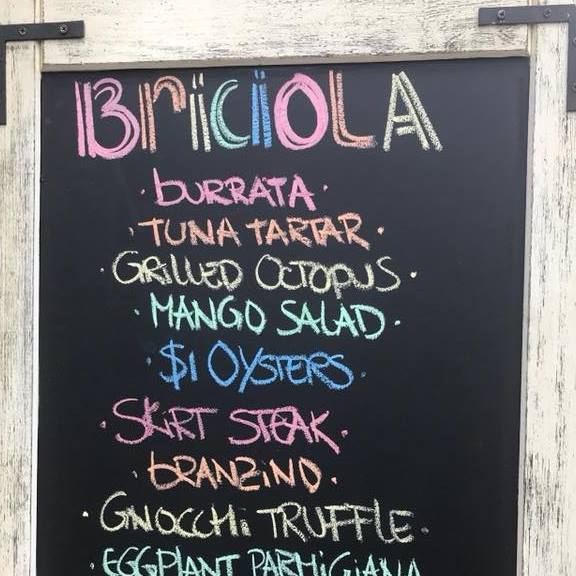 BRiCiOLA
·bURRATA·
·TUNA TARTAR·
·GRILLED OCTOPUS·
·MANGO SALAD·
·$1 OYSTERS·
·SKIRT STEAK·
·bRANZiNO·
·GNOCCHi TRUFFLE·
·EGGPLANT PARMiGiANA